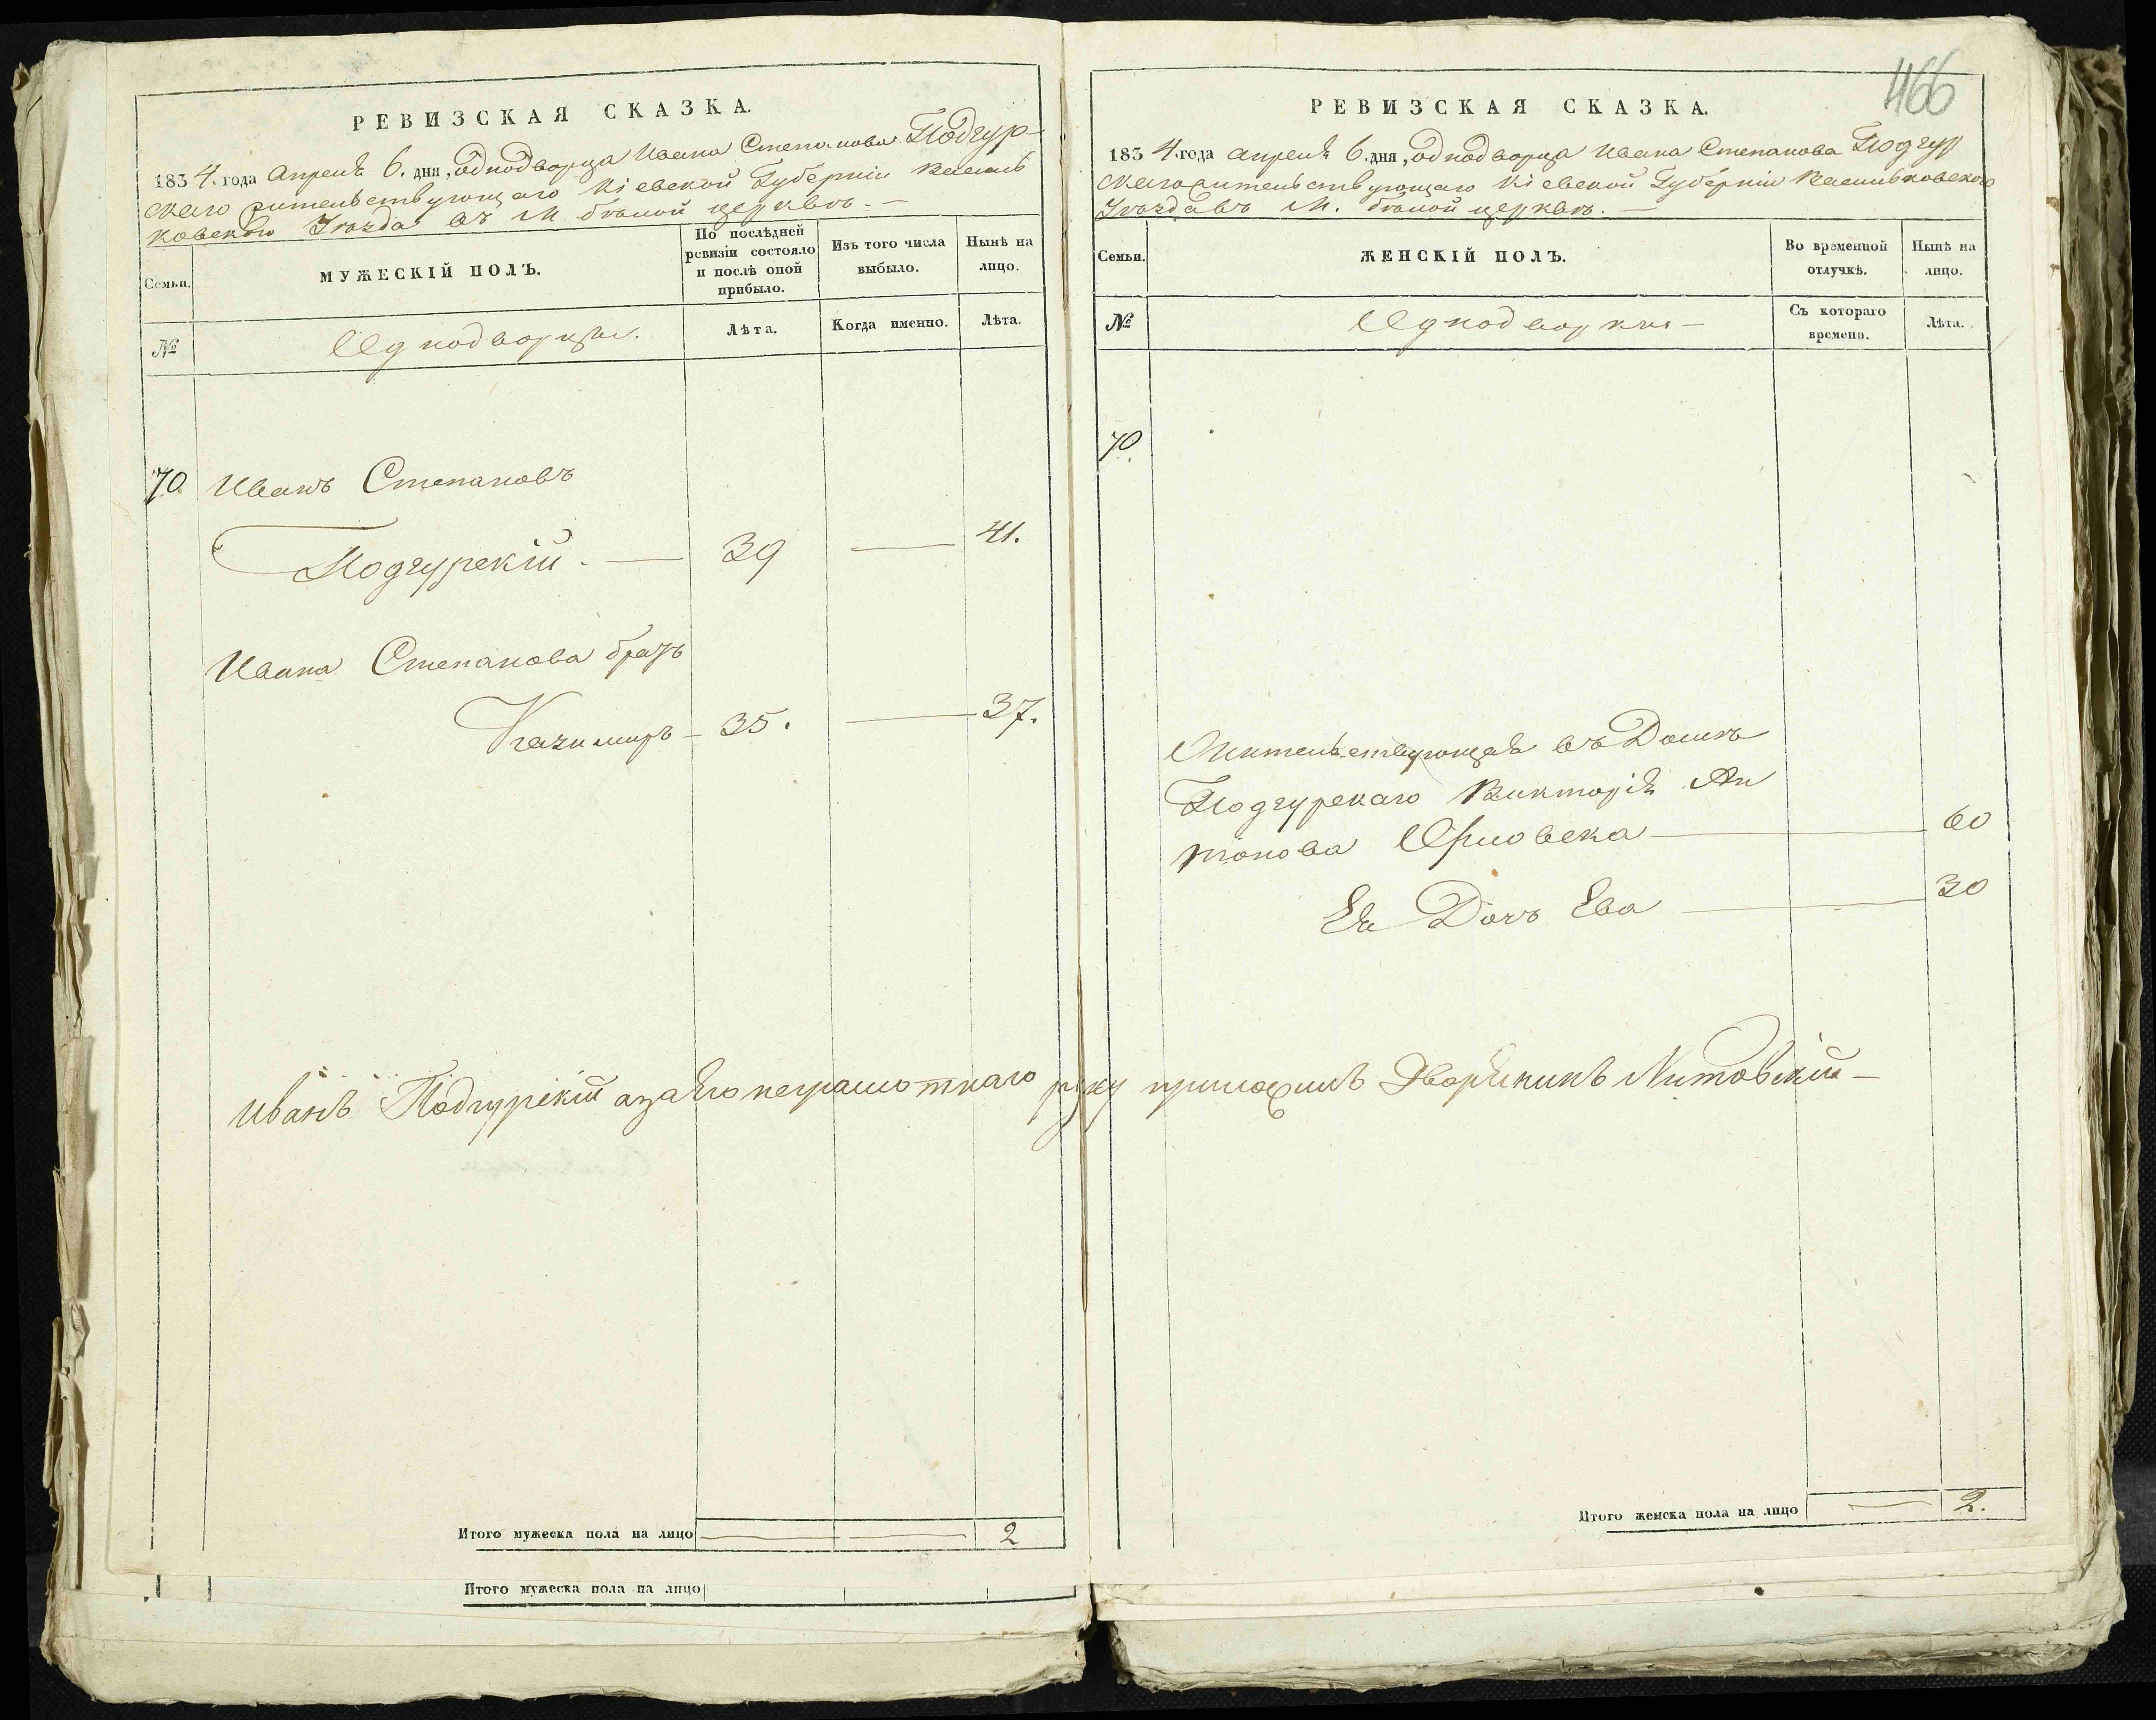 РЕВИЗСКАЯ СКАЗКА.
1834. года Апреля 6. дня, однодворца Ивана Степанова Подгур-
скаго жительствующаго Кіевской Губерніи Василь
ковскаго Уѣзда въ М. бѣлой церквѣ. —
Семьи.
МУЖЕСКІЙ ПОЛЪ.
По послѣдней ревизіи состояло и послѣ оной прибыло.
Изъ того числа выбыло.
Нынѣ на лицо.
№
Однодворцы.
Лѣта.
Когда именно.
Лѣта.
70. Иванъ Степановъ
Подгурскій. — 39 — 41.
Ивана Степанова братъ
Казимиръ — 35. — 37.
Итого мужеска пола на лицо — — 2
Итого мужеска пола на лицо
466
РЕВИЗСКАЯ СКАЗКА.
1834. года Апреля 6. дня, однодворца Ивана Степанова Подгур
скаго жительствующаго Кіевской Губерніи Васильковскаго
Уѣзда въ М. бѣлой церквѣ. —
Семьи.
ЖЕНСКІЙ ПОЛЪ.
Во временной отлучкѣ.
Нынѣ на лицо.
№
Однодворки —
Съ котораго времени.
Лѣта.
70.
Жительствующая въ Домѣ
Подгурскаго Викторія Ан
тонова — 60
Ея Дочь Ева — 30
Иванъ Подгурскій а за Его неграмотнаго руку приложилъ Дворянинъ Литовскій —
Итого женска пола на лицо — 2.